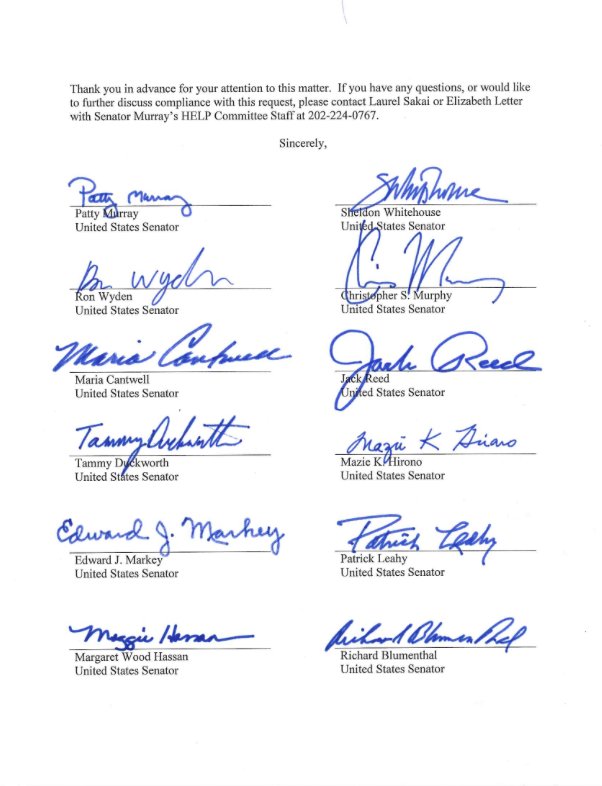 Thank you in advance for your attention to this matter. If you have any questions, or would like
to further discuss compliance with this request, please contact Laurel Sakai or Elizabeth Letter
with Senator Murray's HELP Committee Staff at 202-224-0767.
Sincerely,
Patty Murray
Patty Murray
United States Senator
SWhitehouse
Sheldon Whitehouse
United States Senator
Ron Wyden
Ron Wyden
United States Senator
Chris Murphy
Christopher S. Murphy
United States Senator
Maria Cantwell
Maria Cantwell
United States Senator
Jack Reed
Jack Reed
United States Senator
Tammy Duckworth
Tammy Duckworth
United States Senator
Mazie K Hirono
Mazie K. Hirono
United States Senator
Edward J. Markey
Edward J. Markey
United States Senator
Patrick Leahy
Patrick Leahy
United States Senator
Maggie Hassan
Margaret Wood Hassan
United States Senator
Richard Blumenthal
Richard Blumenthal
United States Senator